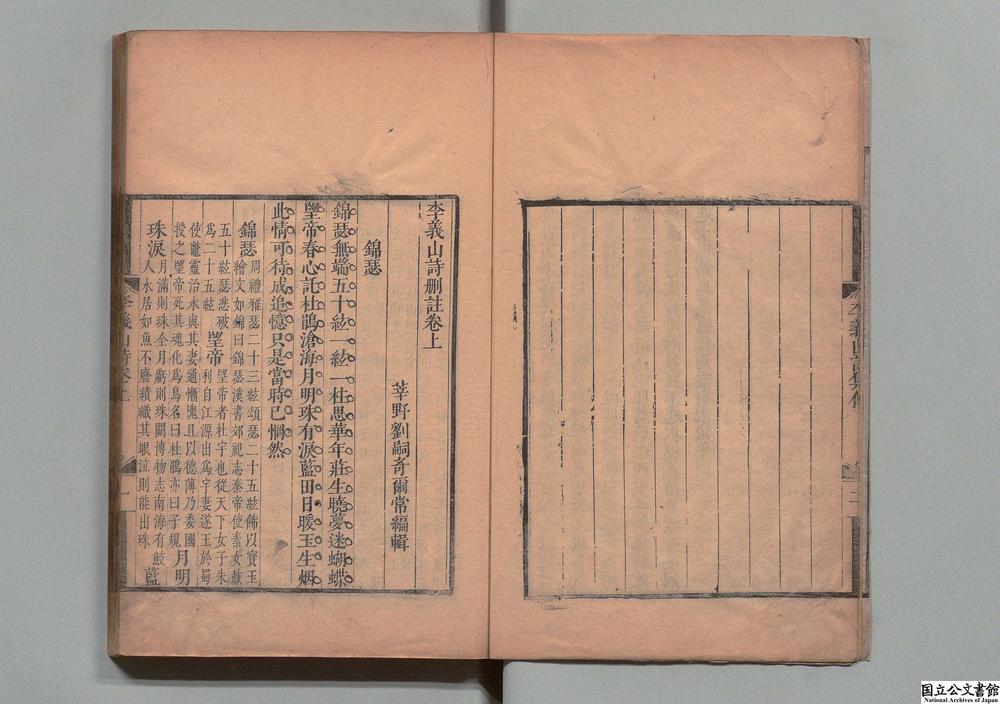 李義山詩刪註卷上
莘野劉嗣奇爾常編輯
錦瑟
錦瑟無端五十絃一絃一柱思華年莊生曉夢迷蝴蝶
望帝春心託杜鵑滄海月明珠有淚藍田日暖玉生烟
此情可待成追憶只是當時已惘然
錦瑟周禮雅瑟二十三絃頌瑟二十五絃飾以寶玉
繪文如錦曰錦瑟漢書郊祀志泰帝使素女鼓
五十絃瑟悲破
為二十五絃
望帝望帝者杜宇也從天下女子朱
利自江源出為宇妻遂王於蜀
使鼈靈治水與其妻通慚愧且以德薄乃委國
授之望帝死其魂化為鳥名曰杜鵑亦曰子規
月明
珠淚月滿則珠全月虧則珠闕博物志南海有鮫
人水居如魚不廢績織其眼泣則能出珠
藍
李義山詩卷上
一
二
国立公文書館
National Archives of Japan